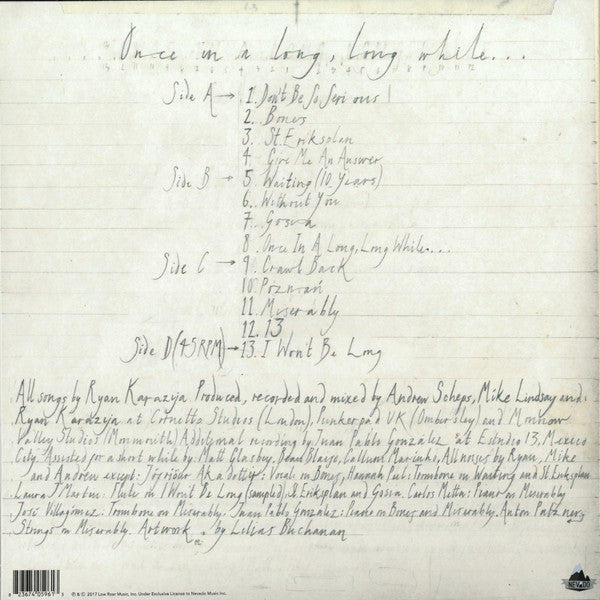 Once in a long, long while...
Side A → 1. Don't Be So Serious
2. Bones
3. St. Eriksplan
4. Give Me An Answer
Side B → 5. Waiting (10 Years)
6. Without You
7. Gosia
8. Once In A Long, Long While...
Side C → 9. Crawl Back
10. Poznań
11. Miserably
12. 13
Side D (45RPM) → 13. I Won't Be Long
All songs by Ryan Karazija Produced, recorded and mixed by Andrew Scheps, Mike Lindsay and
Ryan Karazija at Cornetto Studios (London), Punkerpad UK (Ombersley) and Monnow
Valley Studios (Monmouth) Additional recording by Juan Pablo González at Estudio 13, Mexico
City. Assisted for a short while by: Matt Glasbey, Blaise, Callum All noises by Ryan, Mike
and Andrew except: AKA Vocal on Bones, Hannah Trombone on Waiting and St Eriksplan
Laura J Martin: Flute on I Won't Be Long (sampled), St Eriksplan and Gosia. Carlos Piano on Miserably
José Villagómez: Trombone on Miserably. Juan Pablo González: Piano on Bones and Miserably. Anton Patzner:
Strings on Miserably. Artwork by Lilias Buchanan
8 23674 05961 3
Ⓟ & © 2017 Low Roar Music, Inc. Under Exclusive License to Nevado Music Inc.
NEVADO